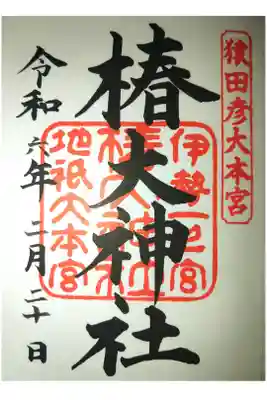 猿田彦大本宮
椿大神社
伊勢一之宮
椿大神社
地祇大本宮
令和六年二月二十日